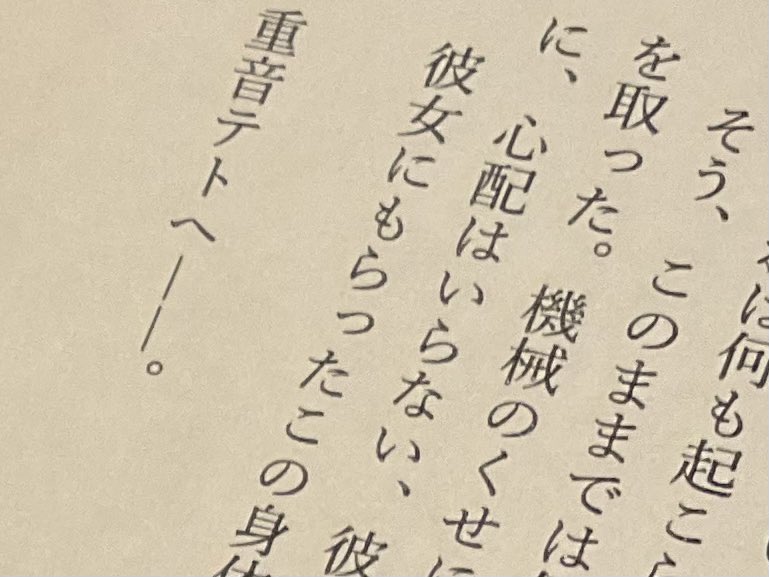 は何も起こら
そう、このままでは
を取った。機械のくせに
に、心配はいらない、彼
彼女にもらったこの身体
重音テトへ――。